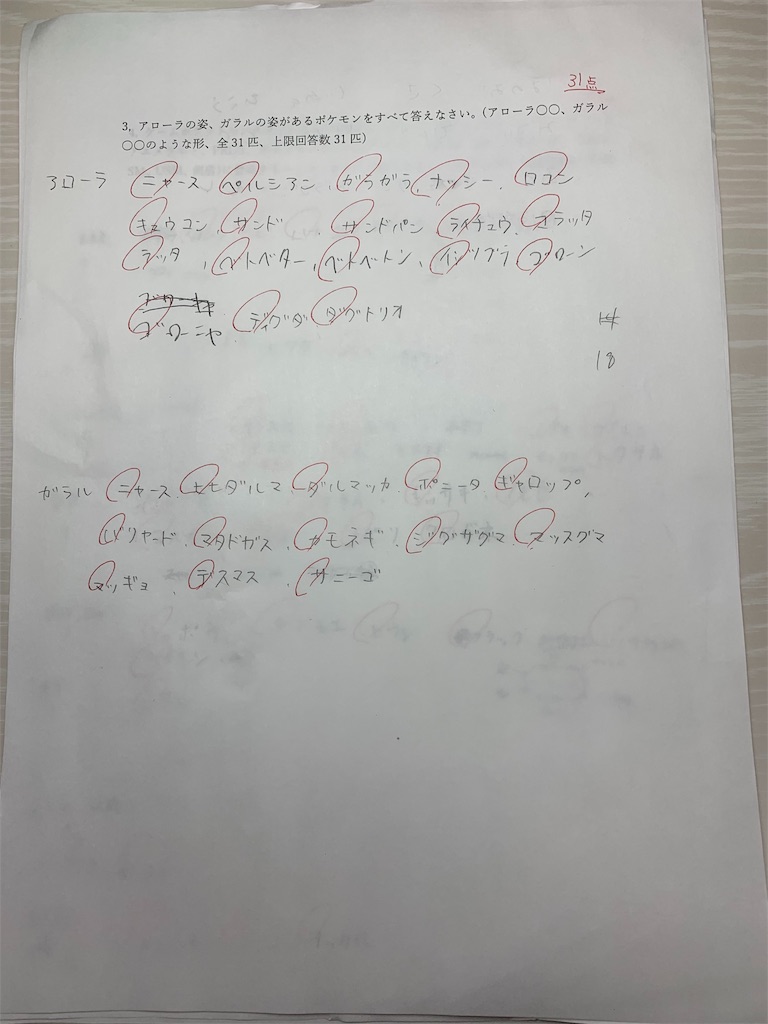 31点
3, アローラの姿、ガラルの姿があるポケモンをすべて答えなさい。(アローラ〇〇、ガラル
〇〇のような形、全31匹、上限回答数31匹)
アローラ ニャース ペルシアン、ガラガラ、ナッシー、ロコン
キュウコン、サンド、サンドパン、ライチュウ、コラッタ
ラッタ、ベトベター、ベトベトン、イシツブテ ゴローン
ゴローニャ、ディグダ ダグトリオ
18
ガラル ニャース、ヒヒダルマ、ダルマッカ、ポニータ ギャロップ,
バリヤード、マタドガス、カモネギ、ジグザグマ、マッスグマ
マッギョ、デスマス、サニーゴ